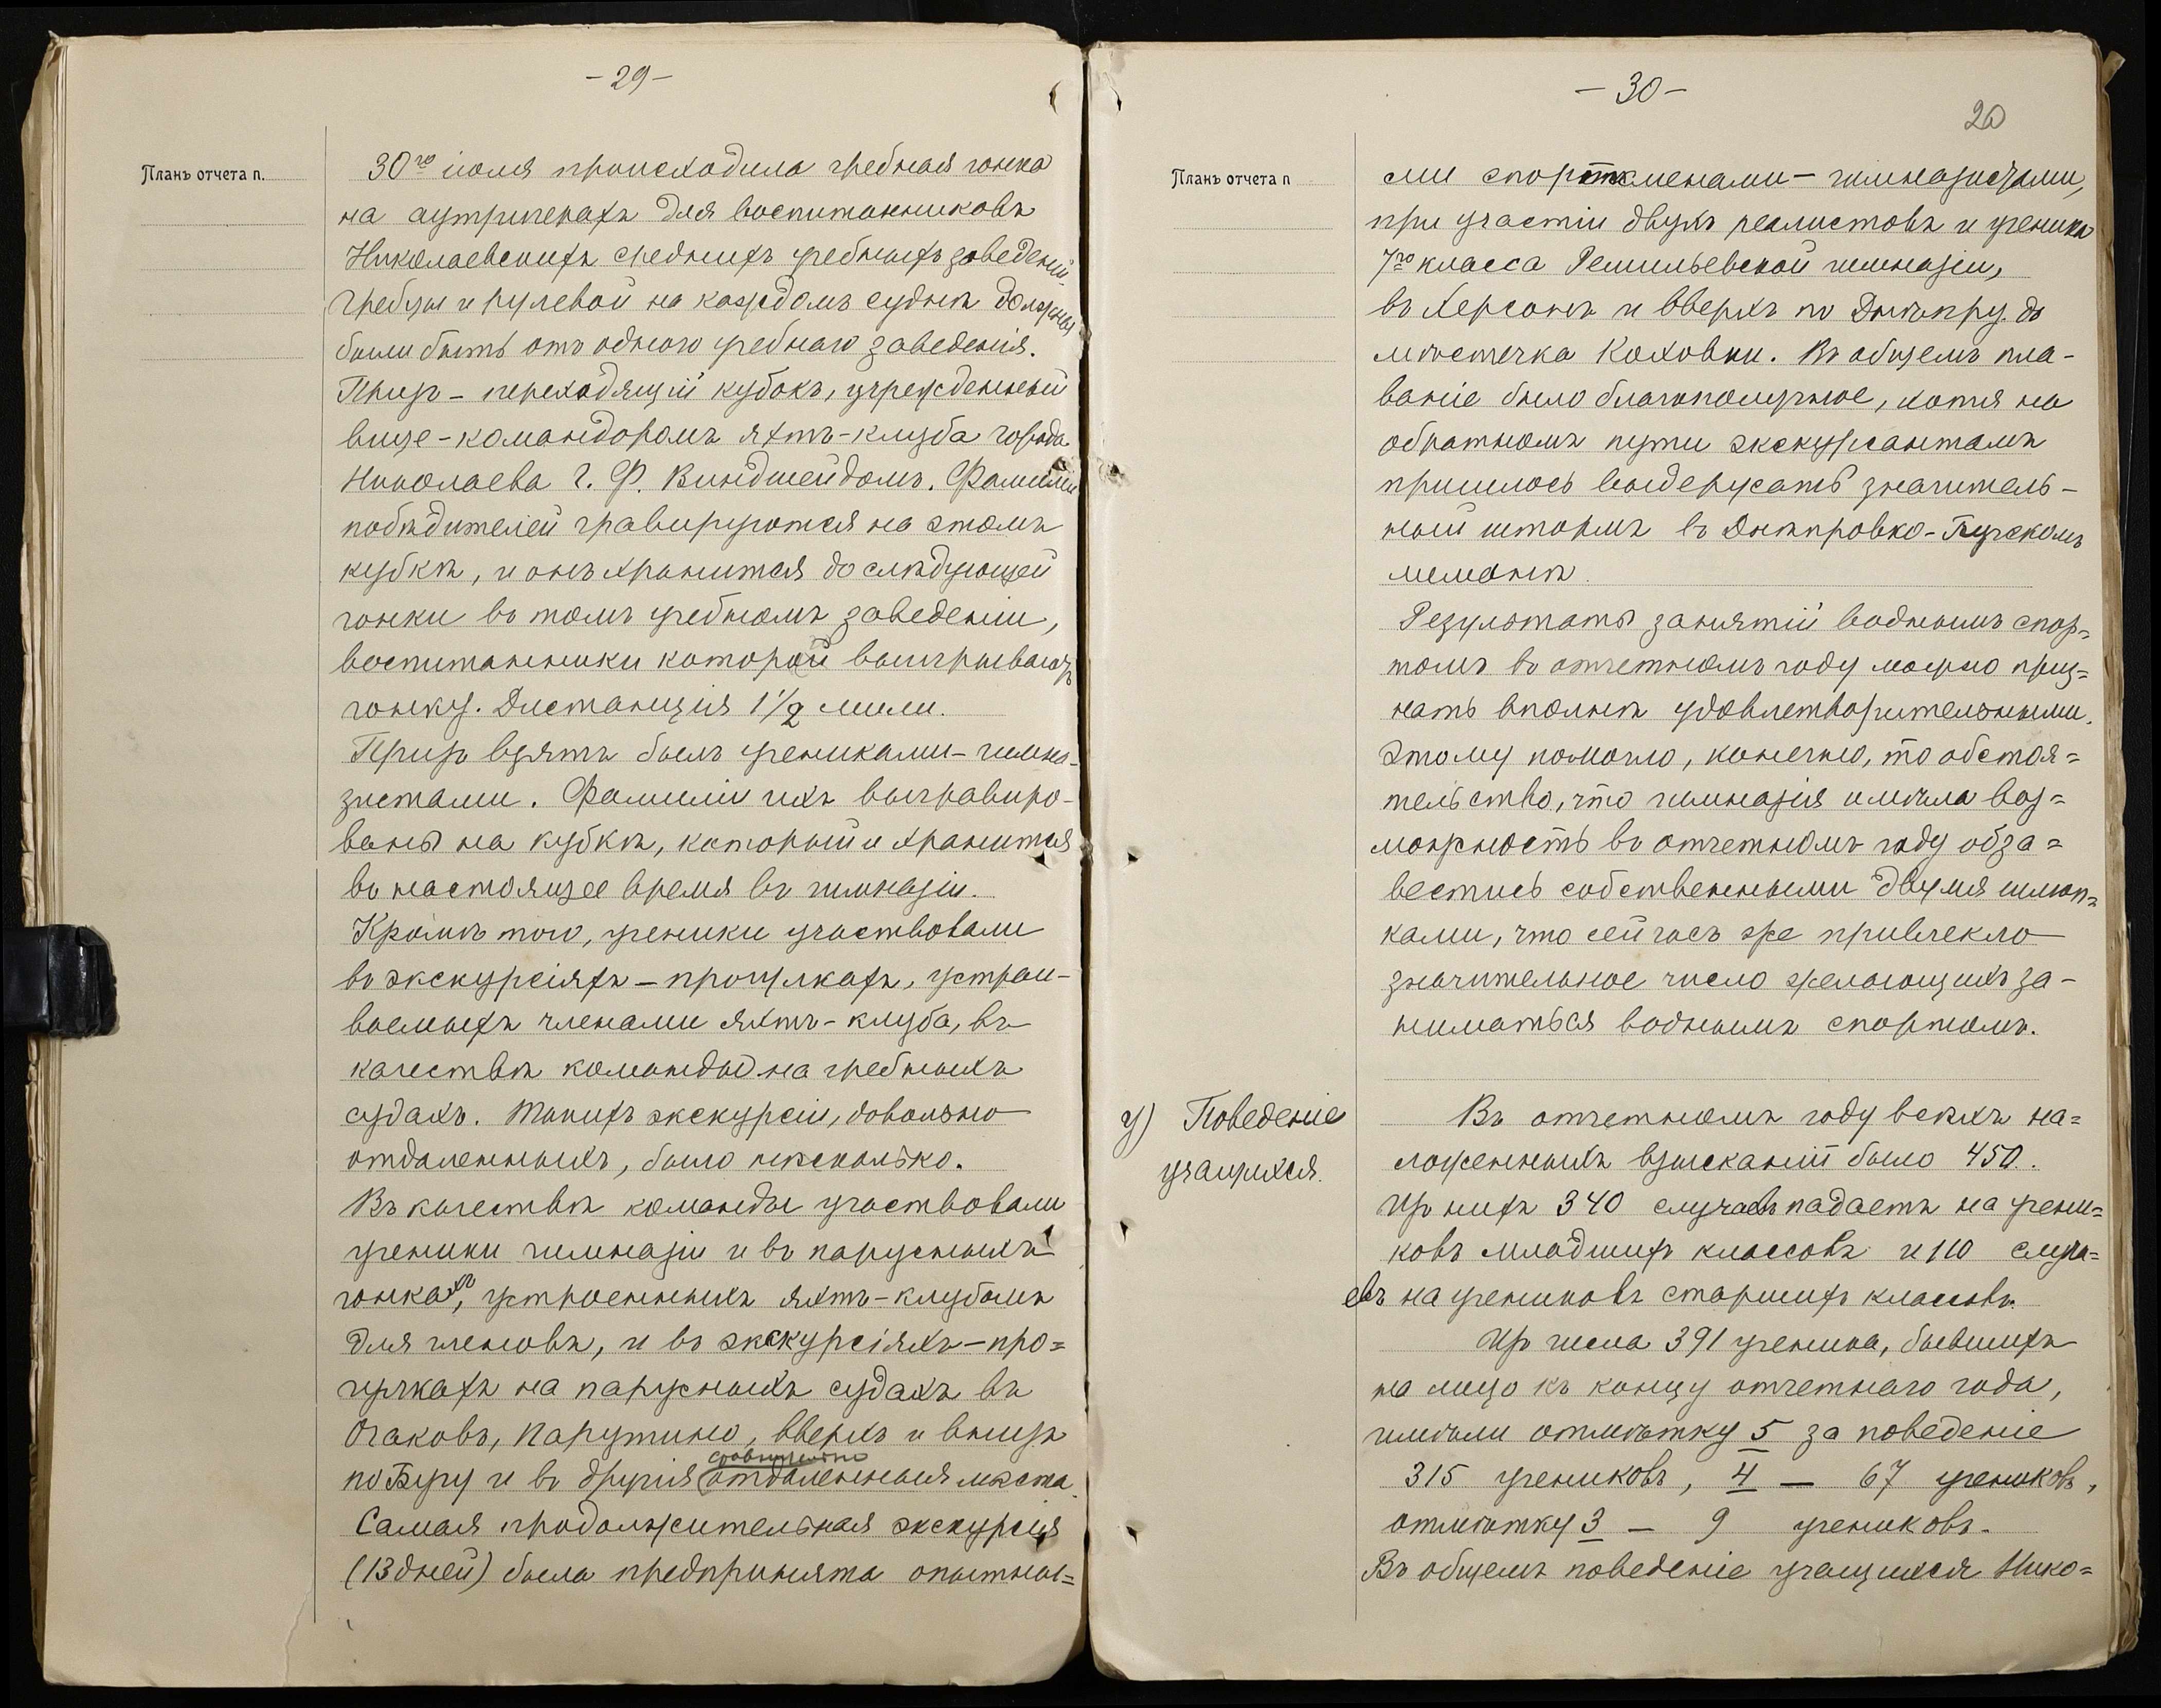 -29-
Планъ отчета п.
30го іюля происходила гребная гонка
на аутригерахъ для воспитанниковъ
Николаевскихъ среднихъ учебныхъ заведеній.
Гребцы и рулевой на каждомъ суднѣ должны
были быть отъ одного учебнаго заведенія.
Призъ - переходящій кубокъ, учрежденный
вице-командоромъ яхтъ-клуба города
Николаева Г. Ф. Виндшейдомъ. Фамиліи
побѣдителей гравируются на этомъ
кубкѣ, и онъ хранится до слѣдующей
гонки въ томъ учебномъ заведеніи,
воспитанники которой выигрываютъ
гонку. Дистанція 1 1/2 мили.
Призъ взятъ былъ учениками-гимна-
зистами. Фамиліи ихъ выгравиро-
ваны на кубкѣ, который и хранится
въ настоящее время въ гимназіи.
Кромѣ того, ученики участвовали
въ экскурсіяхъ - прогулкахъ, устраи-
ваемыхъ членами яхтъ-клуба, въ
качествѣ команды на гребныхъ
судахъ. Такихъ экскурсій, довольно
отдаленныхъ, было нѣсколько.
Въ качествѣ команды участвовали
ученики гимназіи и въ парусныхъ
гонкахъ, устроенныхъ яхтъ-клубомъ
для членовъ, и въ экскурсіяхъ-про=
гулкахъ на парусныхъ судахъ въ
Очаковъ, Парутино, вверхъ и внизъ
сравнительно
по Бугу и въ другія отдаленныя мѣста.
Самая продолжительная экскурсія
(13 дней) была предпринята опытны=
-30-
20
Планъ отчета п
ми спортсменами - гимназистами,
при участіи двухъ реалистовъ и ученика
7го класса Ришельевской гимназіи,
въ Херсонъ и вверхъ по Днѣпру до
мѣстечка Каховки. Въ общемъ пла-
ваніе было благополучное, хотя на
обратномъ пути экскурсантамъ
пришлось выдержать значитель-
ный штормъ въ Днѣпровко-Бугскомъ
лиманѣ.
Результаты занятій воднымъ спор=
томъ въ отчетномъ году можно приз=
нать вполнѣ удовлетворительными.
Этому помогло, конечно, то обстоя=
тельство, что гимназія имѣла воз=
можность въ отчетномъ году обза=
вестись собственными двумя шлюп=
ками, что сейчасъ же привлекло
значительное число желающихъ за-
ниматься воднымъ спортомъ.
у) Поведеніе
учащихся.
Въ отчетномъ году всѣхъ на=
ложенныхъ взысканій было 450.
Изъ нихъ 340 случаевъ падаетъ на учени=
ковъ младшихъ классовъ и 110 случа=
евъ на учениковъ старшихъ классовъ.
Изъ числа 391 ученика, бывшихъ
на лицо къ концу отчетнаго года,
имѣли отмѣтку 5 за поведеніе
315 учениковъ, 4 - 67 учениковъ,
отмѣтку 3 - 9 учениковъ.
Въ общемъ поведеніе учащихся Нико=